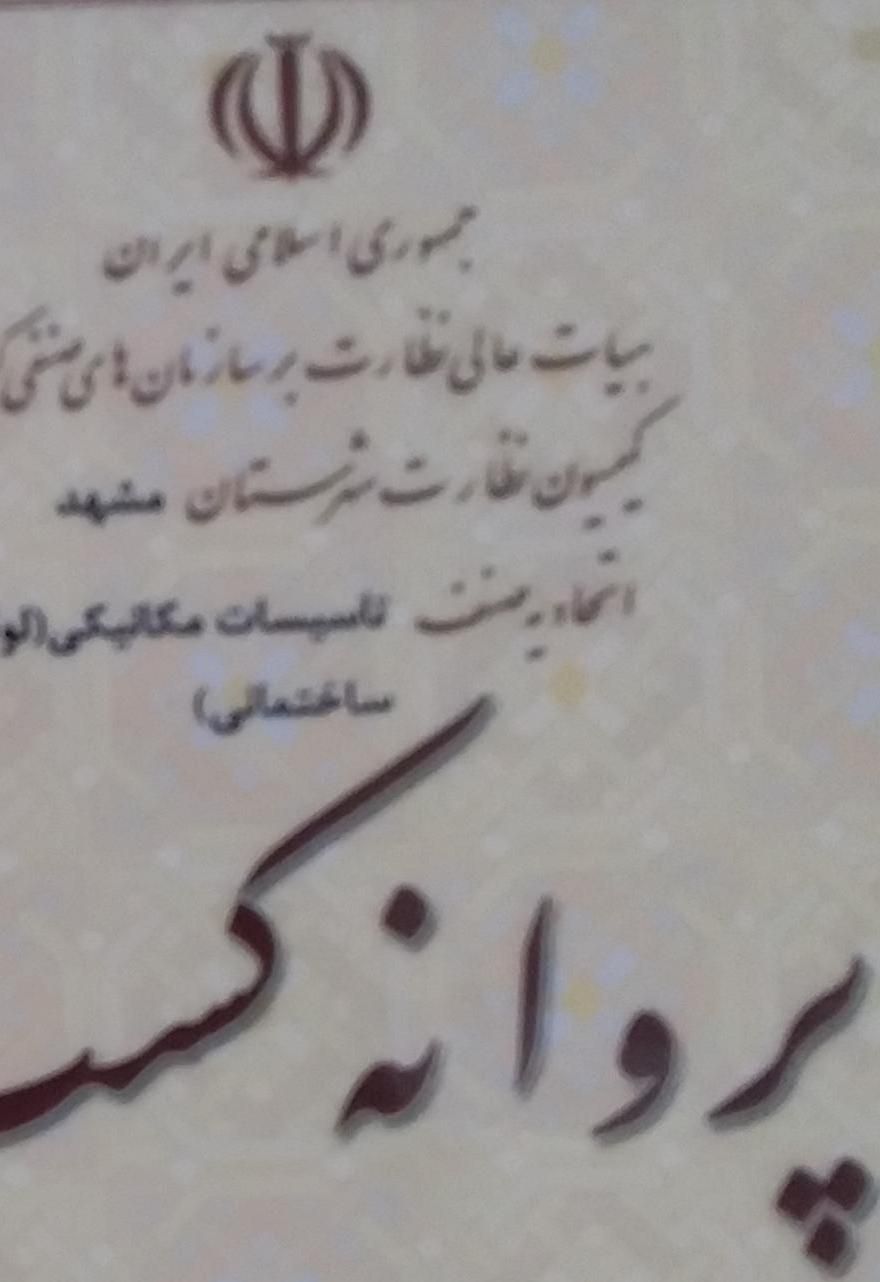 جمهوری اسلامی ایران
هیات عالی نظارت بر سازمان های صنفی
کمیسیون نظارت شهرستان مشهد
اتحادیه صنف تاسیسات مکانیکی (لو
ساختمانی)
پروانه کسب